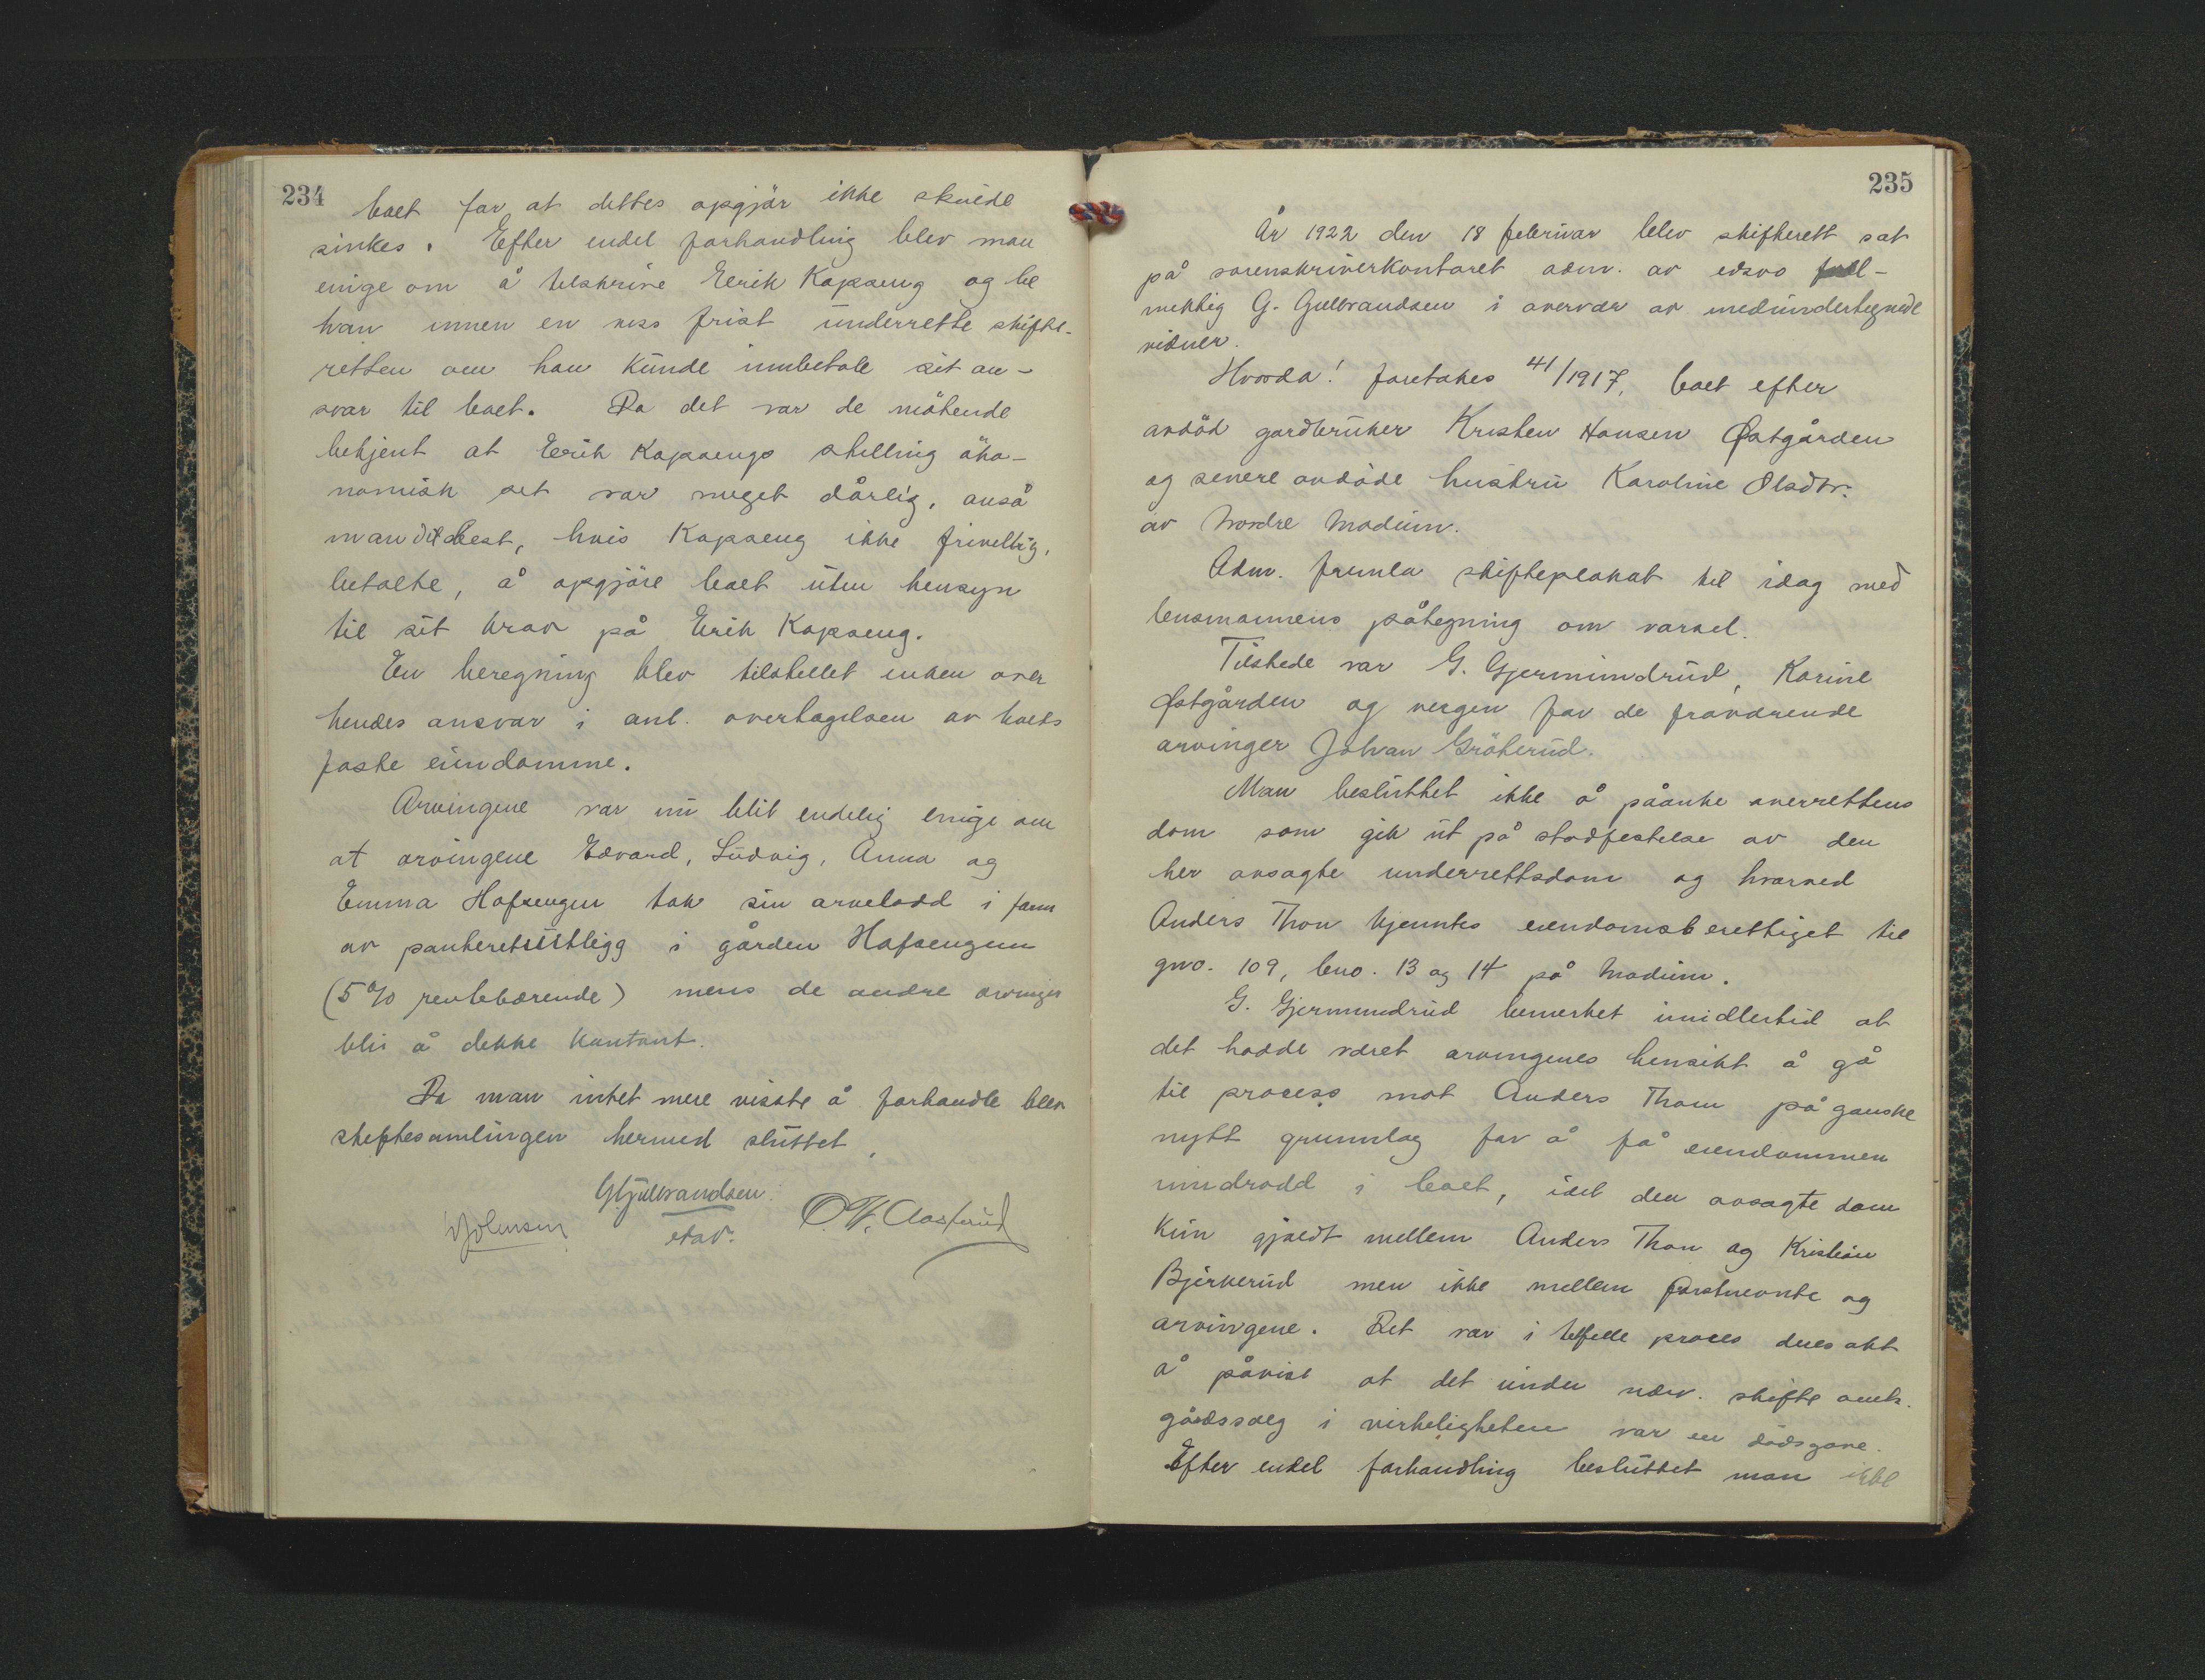 234
boet for at dettes opgjör ikke skulde
sinkes. Efter endel forhandling blev man
enige om å tilskrive Eerik Kopseng og be
han innen en viss frist underrette skifte-
retten om han kunde innbetale sit an-
svar til boet. Da det var de mötende
bekjent at Erik Kopsengs stilling öko-
nomisk set var meget dårlig, anså
man det best, hvis Kopseng ikke frivellig,
betalte, å opgjöre boet uten hensyn
til sit krav på Erik Kopseng.
En beregning blev tilstellet enken over
hendes ansvar i anl. overtagelsen av boets
faste eiendomme.
Arvingene var nu blit endelig enige om
at arvingene Edvard, Ludvig, Anna og
Emma Hofsengen tok sin arvelodd i form
av panteretsutligg i gården Hofsengen
(5% rentebærende) mens de andre arvinger
blir å dekke kontant.
Da man intet mere visste å forhandle blev
skiftesamlingen hermed sluttet.
G Gulbrandsen
eAv.
Johnsen
O. H. Aaslerud
235
År 1922 den 18 februar blev skifterett sat
på sorenskriverkontoret adm. av edsvo full-
mektig G. Gulbrandsen i overvær av medundertegnede
vidner.
Hvorda! foretokes 41/1917, boet efter
avdöd gardbruker Kristen Hansen Østgården
og senere avdöde hustru Karoline Olsdtr.
av Nordre Modum.
Adm. fremla skifteplakat til idag med
lensmannens påtegning om varsel.
Tilstede var G. Gjermundrud, Karine
Østgården og vergen for de fraværende
arvinger Johan Gröterud.
Man besluttet ikke å påanke overrettens
dom som gik ut på stadfestelse av den
her avsagte underrettsdom og hvorved
Anders Thon kjenntes eiendomsberettiget til
gno. 109, bno. 13 og 14 på Modum.
G. Gjermundrud bemerket imidlertid at
det hadde været arvingenes hensikt å gå
til process mot Anders Thon på ganske
nytt grunnlag for å få eiendommen
inndradd i boet, idet den avsagte dom
kun gjaldt mellem Anders Thon og Kristian
Bjerkerud men ikke mellem förstnevnte og
arvingene. Det var i tilfelle proces dees akt
å påvise at det under nærv. skifte omh.
gårdssalg i virkeligheten var en dödsgave.
Efter endel forhandling besluttet man ikke